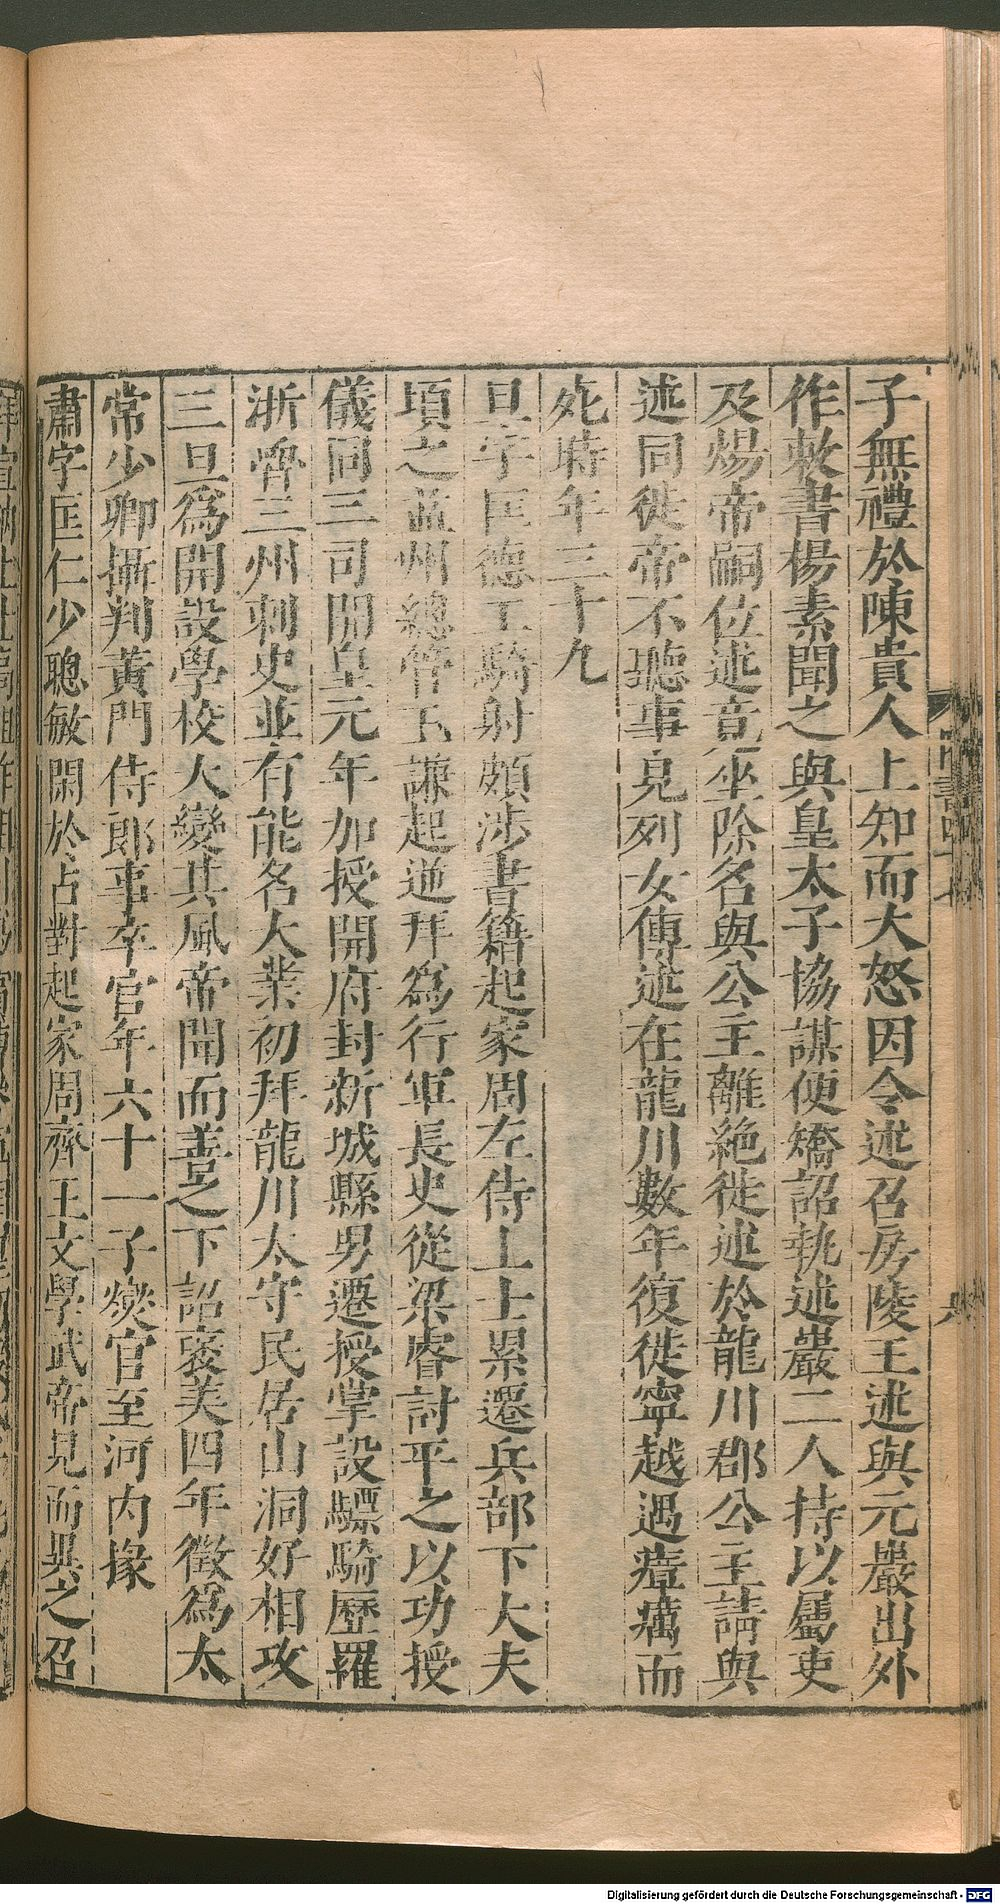 子無禮於陳貴人上知而大怒因令述召房陵王述與元巖出外
作敕書楊素聞之與皇太子協謀便矯詔執述巖二人持以屬吏
及煬帝嗣位述竟坐除名與公主離絶徙述於龍川郡公主請與
述同徙帝不聽事見列女傳述在龍川數年復徙寧越遇瘴癘而
死時年三十九
旦字匡德工騎射頗涉書籍起家周左侍上士累遷兵部下大夫
頃之益州總管王謙起逆拜為行軍長史從梁睿討平之以功授
儀同三司開皇元年加授開府封新城縣男遷授掌設驃騎歷羅
浙魯三州刺史並有能名大業初拜龍川太守民居山洞好相攻
三旦為開設學校大變其風帝聞而善之下詔褒美四年徵為太
常少卿攝判黃門侍郎事卒官年六十一子爕官至河內掾
肅字匡仁少聰敏閑於占對起家周齊王文學武帝見而異之召
Digitalisierung gefördert durch die Deutsche Forschungsgemeinschaft - DFG